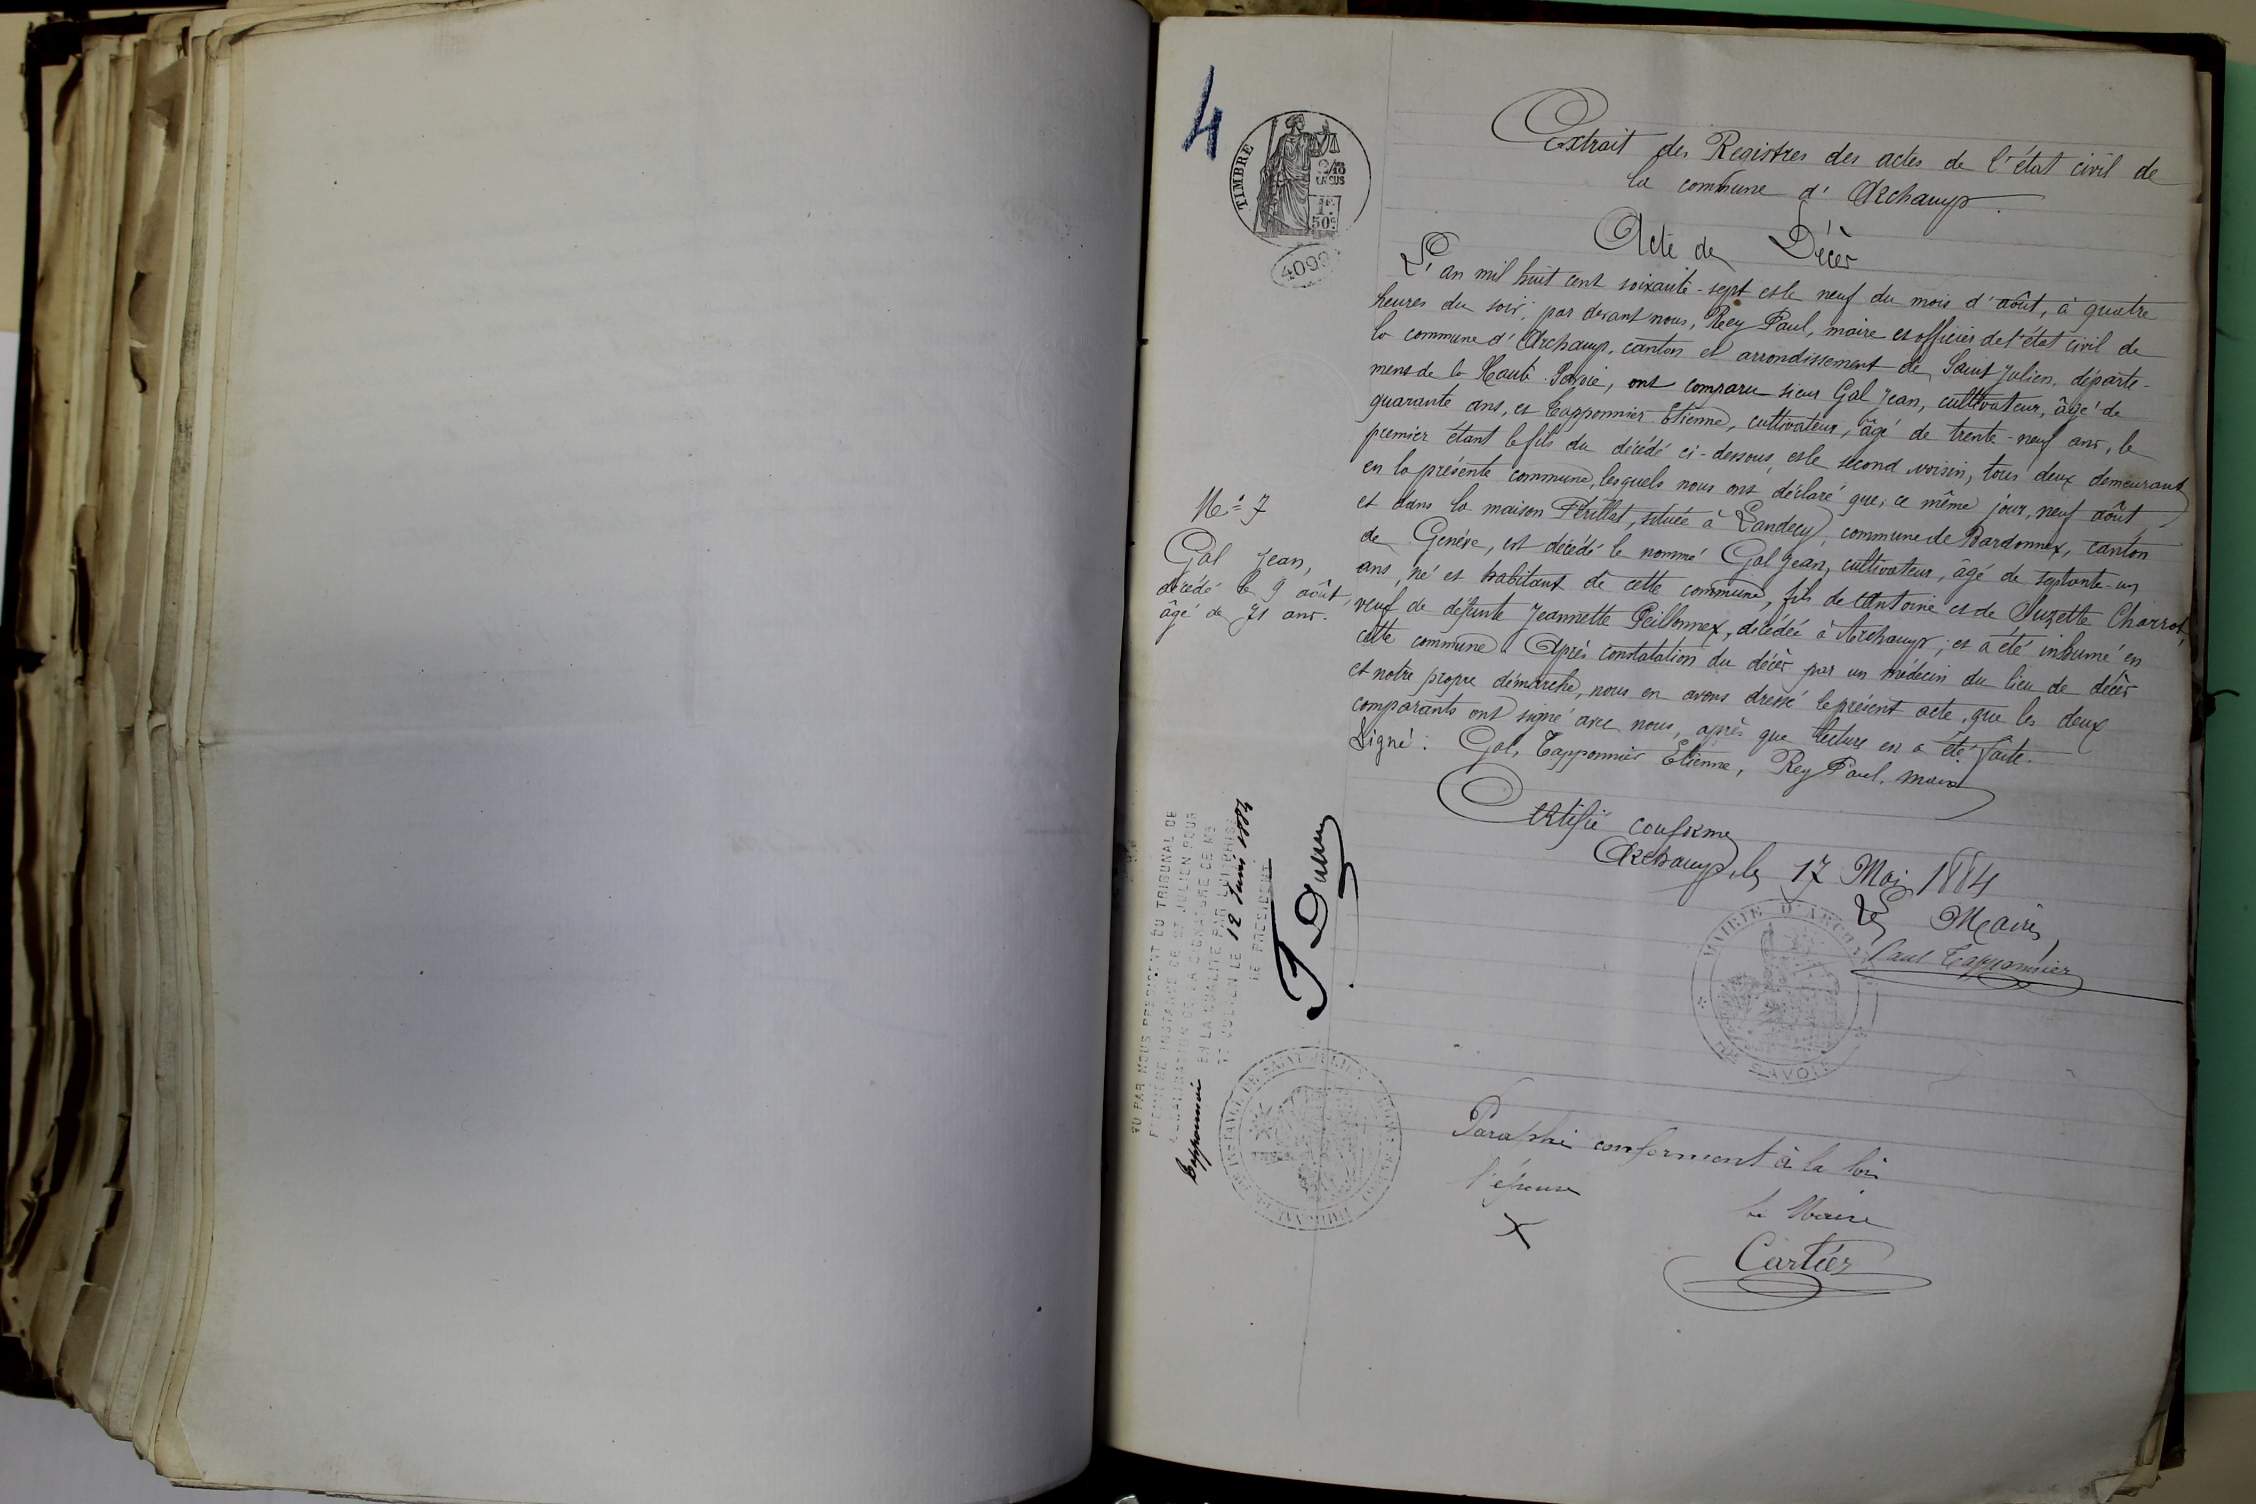 4
TIMBRE
2/10
EN SUS
1F.
50c.
4099
Extrait des Registres des actes de l'état civil de
la commune d'Archamp.
Acte de Décès
L'an mil huit cent soixante-sept et le neuf du mois d'août, à quatre
heures du soir, par devant nous, Rey Paul, maire et officier de l'état civil de
la commune d'Archamp, canton et arrondissement de Saint Julien, départe-
ment de la Haute-Savoie, ont comparu sieur Gal Jean, cultivateur, âgé de
quarante ans, et Tapponnier Etienne, cultivateur, âgé de trente-neuf ans, le
premier étant le fils du décédé ci-dessous, et le second voisin, tous deux demeurant
en la présente commune, lesquels nous ont déclaré que, ce même jour, neuf août,
et dans la maison Périllat, située à Landecy, commune de Bardonnex, canton
de Genève, est décédé le nommé Gal Jean, cultivateur, âgé de septante-un
ans, né et habitant de cette commune, fils de Antoine et de Suzette Charrot,
veuf de défunte Jeannette Peillonnex, décédée à Archamp; et a été inhumé en
cette commune. Après constatation du décès par un médecin du lieu de décès
et notre propre démarche, nous en avons dressé le présent acte, que les deux
comparants ont signé avec nous, après que lecture en a été faite.
Signé: Gal, Tapponnier Etienne, Rey Paul, maire
No 7
Gal Jean,
décédé le 9 août,
âgé de 71 ans.
Certifié conforme
Archamp, le 17 Mai 1884
Le Maire,
Paul Tapponnier
MAIRIE D'ARCHAMP
HTE SAVOIE
VU PAR NOUS PRESIDENT DU TRIBUNAL DE
PREMIERE INSTANCE DE ST JULIEN POUR
LEGALISATION DE LA SIGNATURE DE MR
Tapponnier EN LA QUALITE PAR LUI PRISE
ST JULIEN LE 12 Juin 1884
LE PRESIDENT
TRIBUNAL DE 1RE INSTANCE DE SAINT JULIEN
Paraphé conformement à la loi
l'épouse
X
le Maire
Cartier